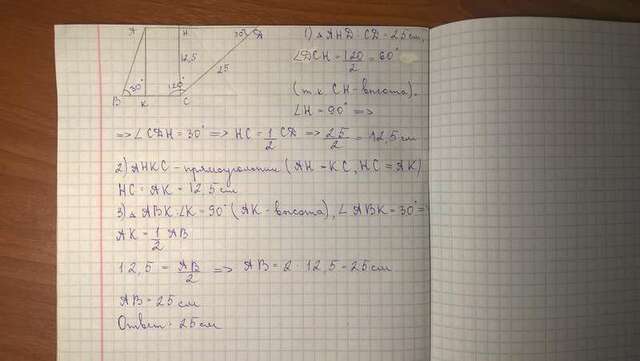 A H 30° D
12,5
25
30° 120°
B K C
1) △AHD CD = 25 см,
∠DCH = 120/2 = 60°
(т.к. CH - высота),
∠H = 90° =>
=> ∠CDH = 30° => HC = 1/2 CD => 25/2 = 12,5 см
2) AHKC - прямоугольник (AH = KC, HC = AK)
HC = AK = 12,5 см
3) △ABK ∠K = 90° (AK - высота), ∠ABK = 30° =>
AK = 1/2 AB
12,5 = AB/2 => AB = 2 · 12,5 = 25 см
AB = 25 см
Ответ: 25 см